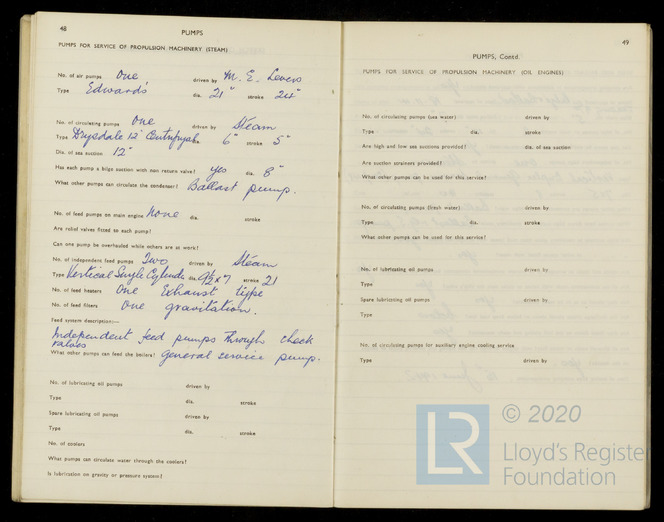 48
PUMPS
PUMPS FOR SERVICE OF PROPULSION MACHINERY (STEAM)
No. of air pumps One driven by M. E. Levers
Type Edwards dia. 21" stroke 24"
No. of circulating pumps One driven by Steam
Type Drysdale 12" Centrifugal dia. 6" stroke 5"
Dia. of sea suction 12"
Has each pump a bilge suction with non return valve? yes dia. 8"
What other pumps can circulate the condenser? Ballast pump.
No. of feed pumps on main engine None dia. stroke
Are relief valves fitted to each pump?
Can one pump be overhauled while others are at work?
No. of independent feed pumps Two driven by Steam
Type Vertical Single Cylinder dia. 9½ x 7 stroke 21
No. of feed heaters One Exhaust type
No. of feed filters One gravitation.
Feed system description:—
Independent feed pumps through check
valves
What other pumps can feed the boilers? General service pump.
No. of lubricating oil pumps driven by
Type dia. stroke
Spare lubricating oil pumps driven by
Type dia. stroke
No. of coolers
What pumps can circulate water through the coolers?
Is lubrication on gravity or pressure system?
49
PUMPS, Contd.
PUMPS FOR SERVICE OF PROPULSION MACHINERY (OIL ENGINES)
No. of circulating pumps (sea water) driven by
Type dia. stroke
Are high and low sea suctions provided? dia. of sea suction
Are suction strainers provided?
What other pumps can be used for this service?
No. of circulating pumps (fresh water) driven by
Type dia. stroke
What other pumps can be used for this service?
No. of lubricating oil pumps driven by
Type
Spare lubricating oil pumps driven by
Type
No. of circulating pumps for auxiliary engine cooling service
Type driven by
LR
© 2020
Lloyd's Register
Foundation